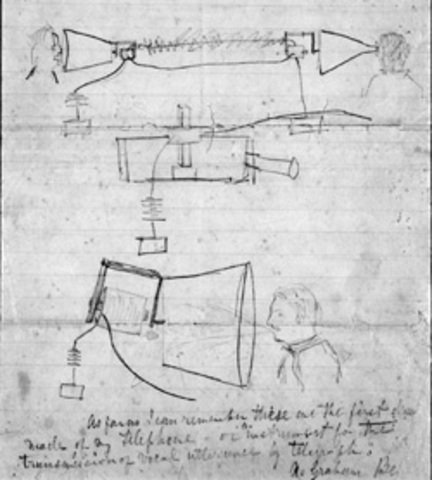 As far as I can remember these are the first
made of my telephone - or "instrument for the
transmission of vocal utterance by telegraph."
A. Graham Be